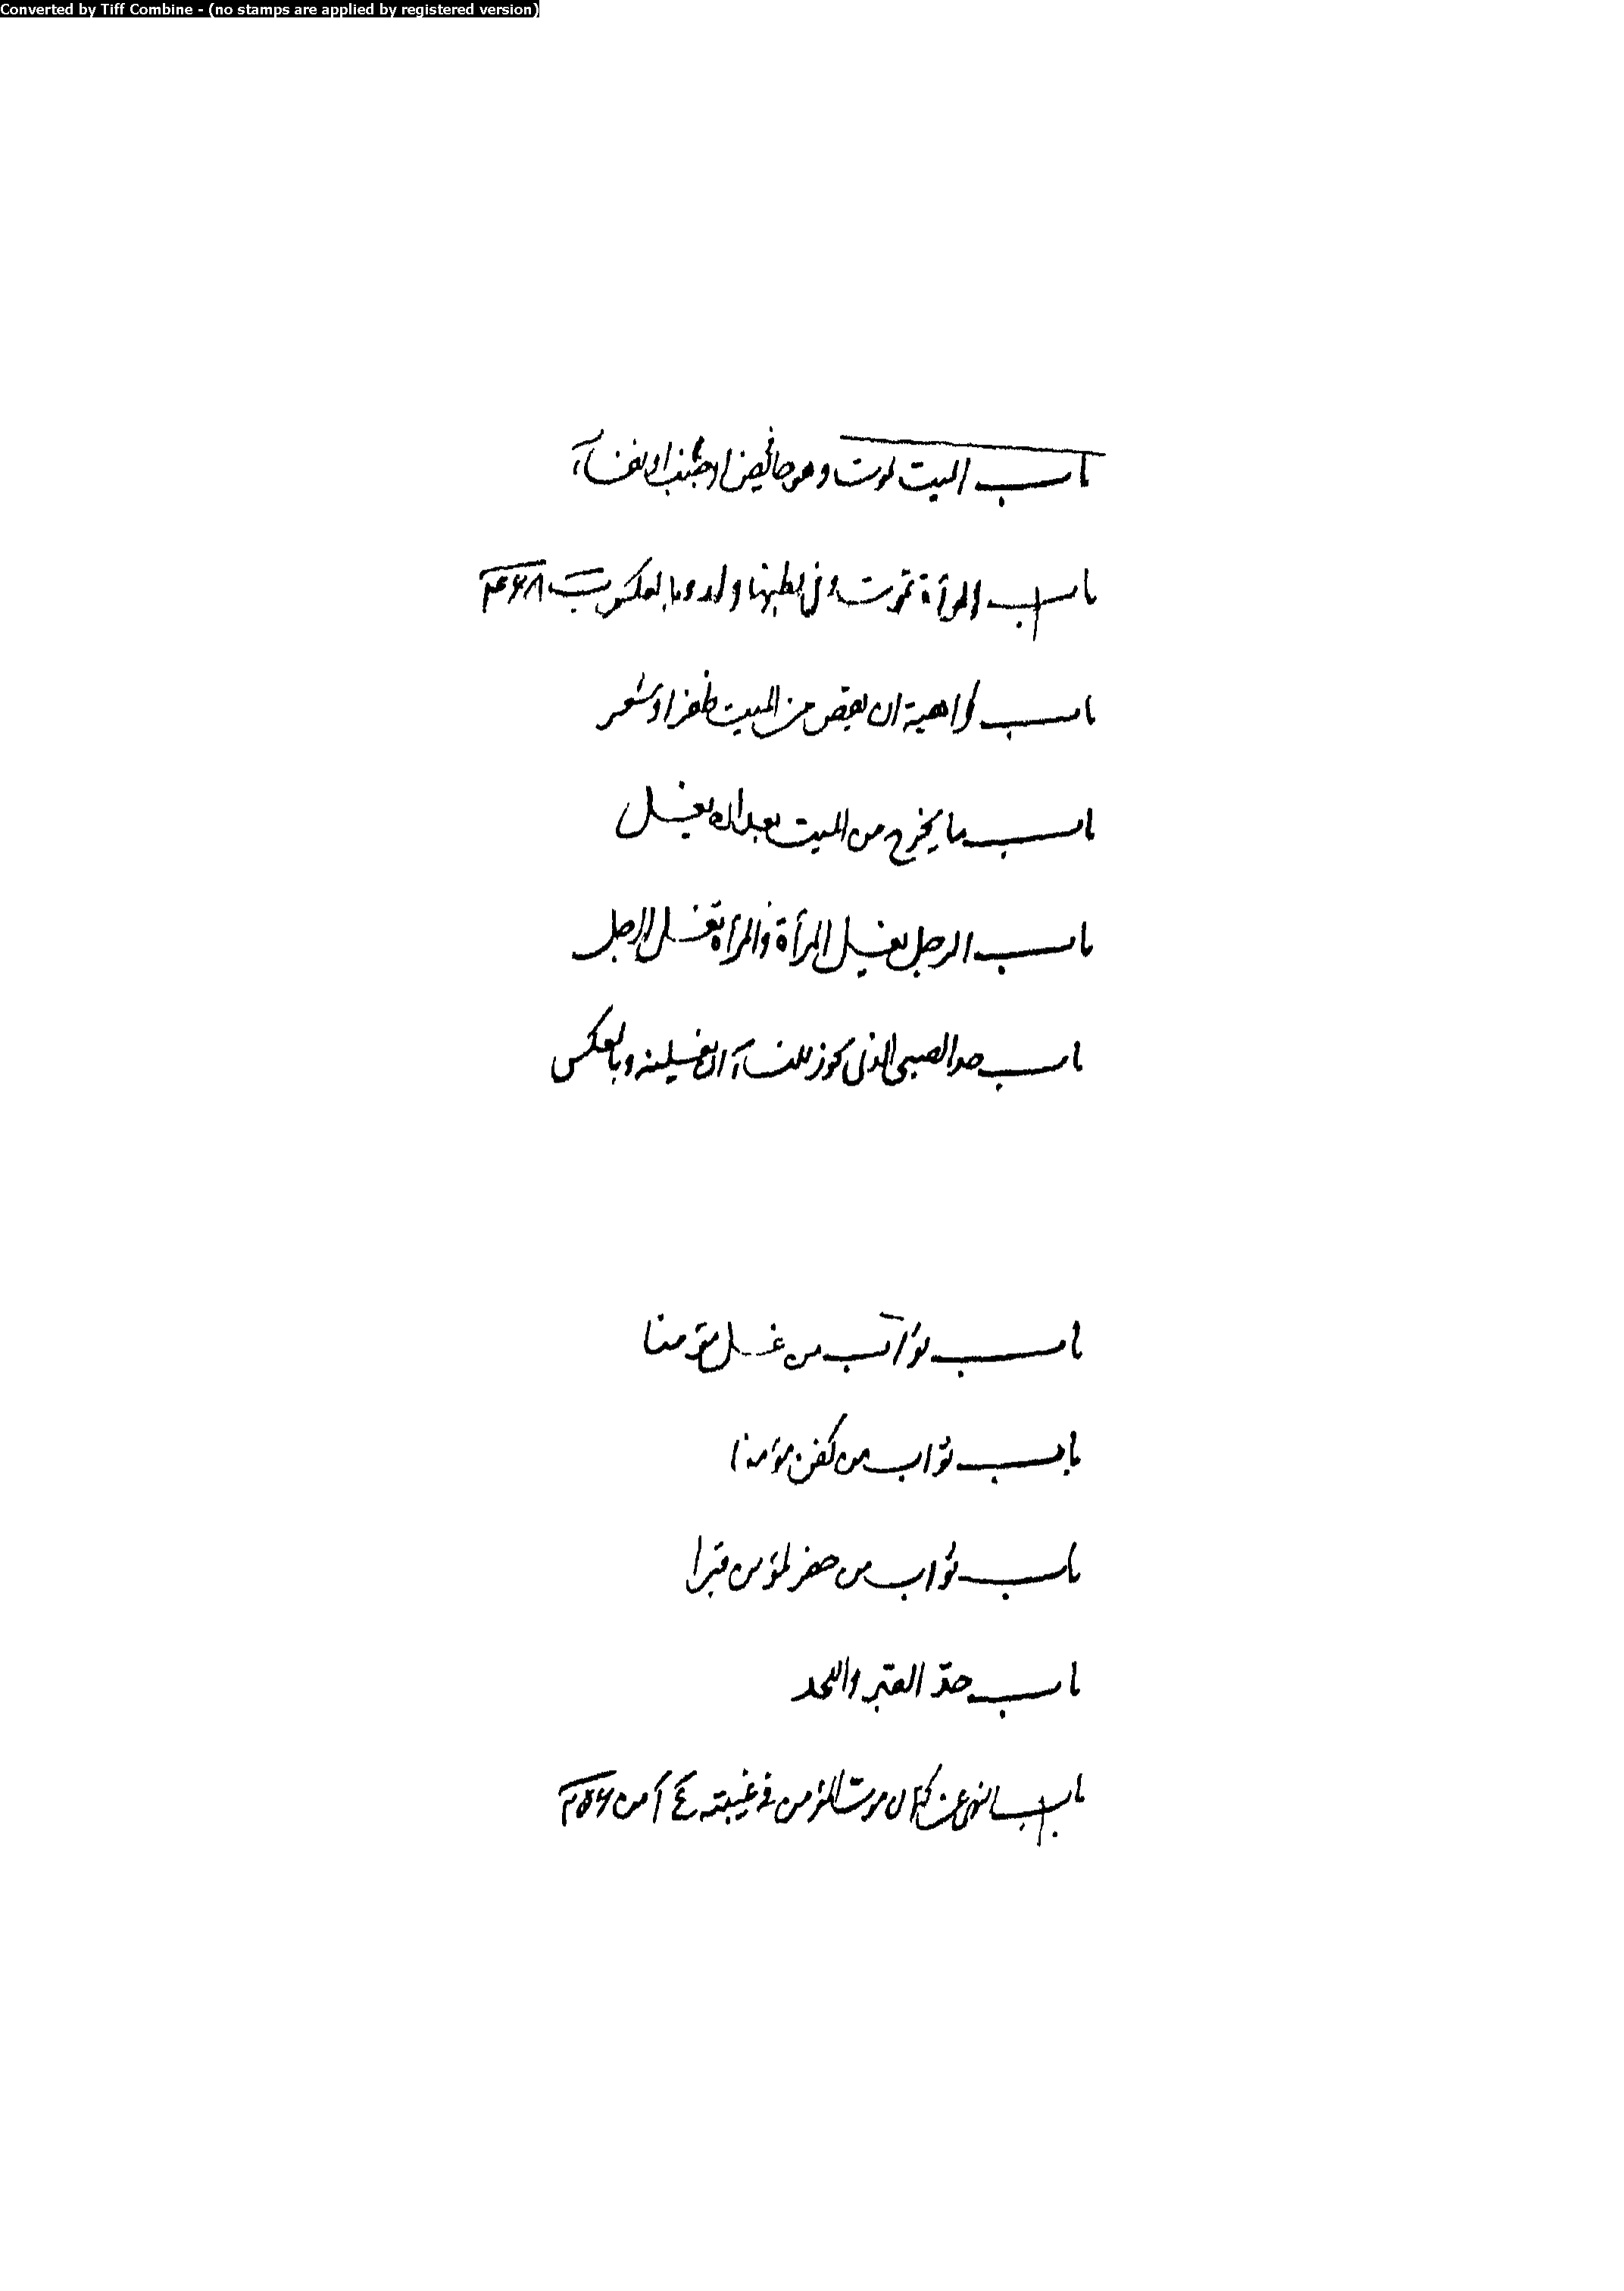 Converted by Tiff Combine - (no stamps are applied by registered version)
باب الميت يموت وهو حائض او جنب او نفسآء
باب المرأة تموت وفى بطنها ولد وبالعكس ب ٤٦٨
باب كراهية ان يقص من الميت ظفر او شعر
باب ما يخرج من الميت بعد ان يغسل
باب الرجل يغسل المرأة والمرأة تغسل الرجل
باب حد الصبى الذى يجوز للنسآء ان يغسلنه وبالعكس
باب ثواب من غسل مؤمنا
باب ثواب من كفن مؤمنا
باب ثواب من حفر لمؤمن قبرا
باب حدّ القبر واللحد
باب النهى عن كتمان موت المؤمن فى غيبته